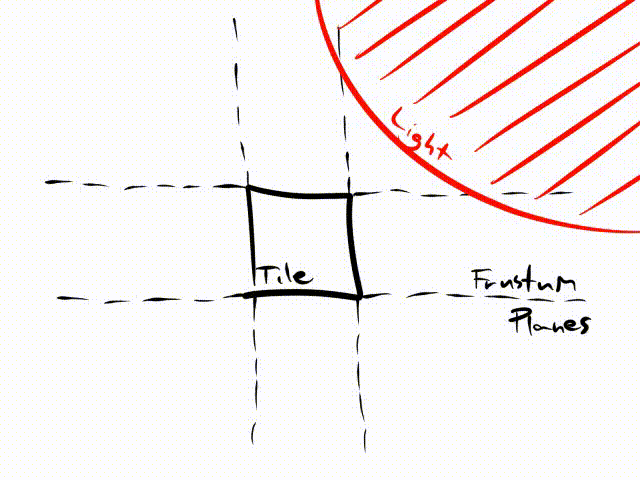 Light
Tile
Frustum
Planes